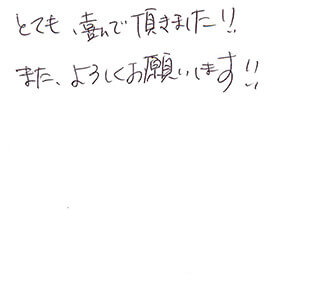 とても、喜んで頂きました!!
また、よろしくお願いします!!